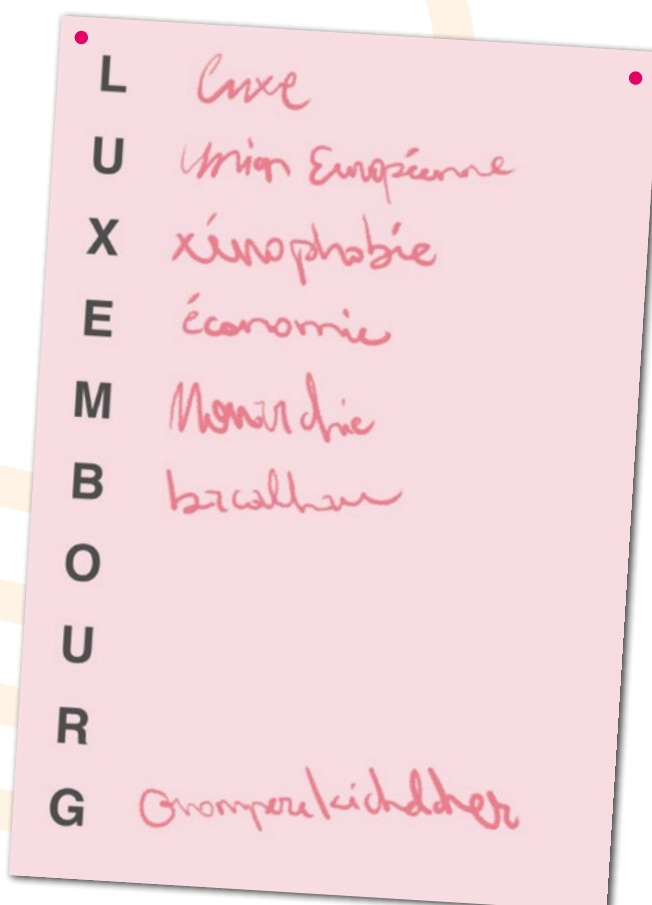 L Luxe
U Union Européenne
X xénophobie
E économie
M Monarchie
B bacalhau
O
U
R
G Gromperekichelcher